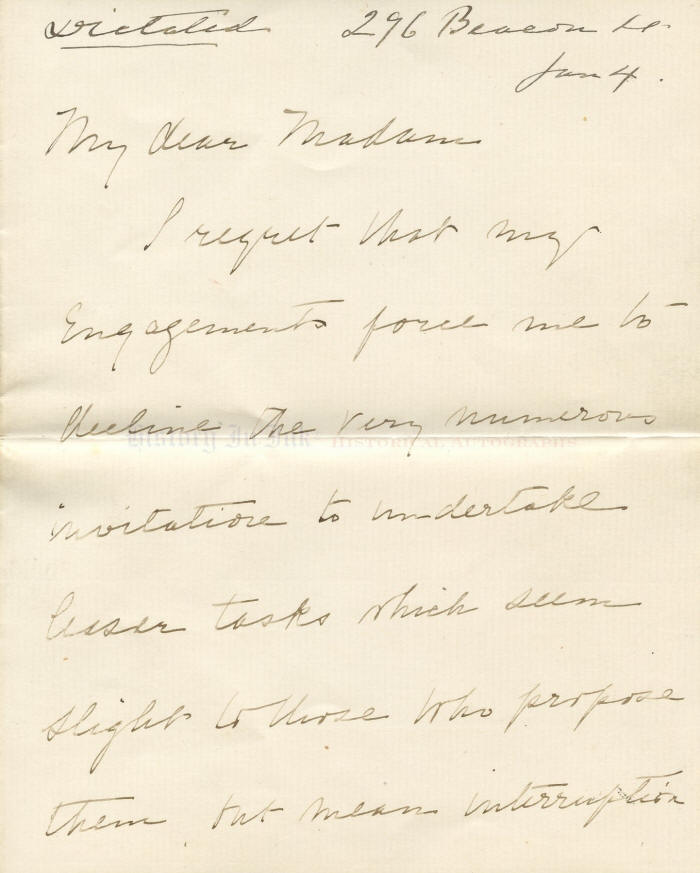 Dictated 296 Beacon St.
Jan 4.
My dear Madam
I regret that my
Engagements force me to
decline the very numerous
History In Ink HISTORICAL AUTOGRAPHS
invitations to undertake
lesser tasks which seem
slight to those who propose
them but mean interruption